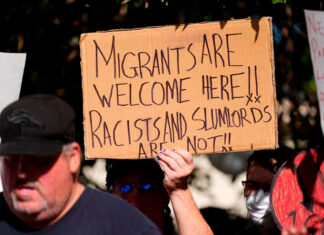 MIGRANTS ARE
WELCOME HERE!!
xx
RACISTS AND SLUMLORDS
xx
ARE NOT!!